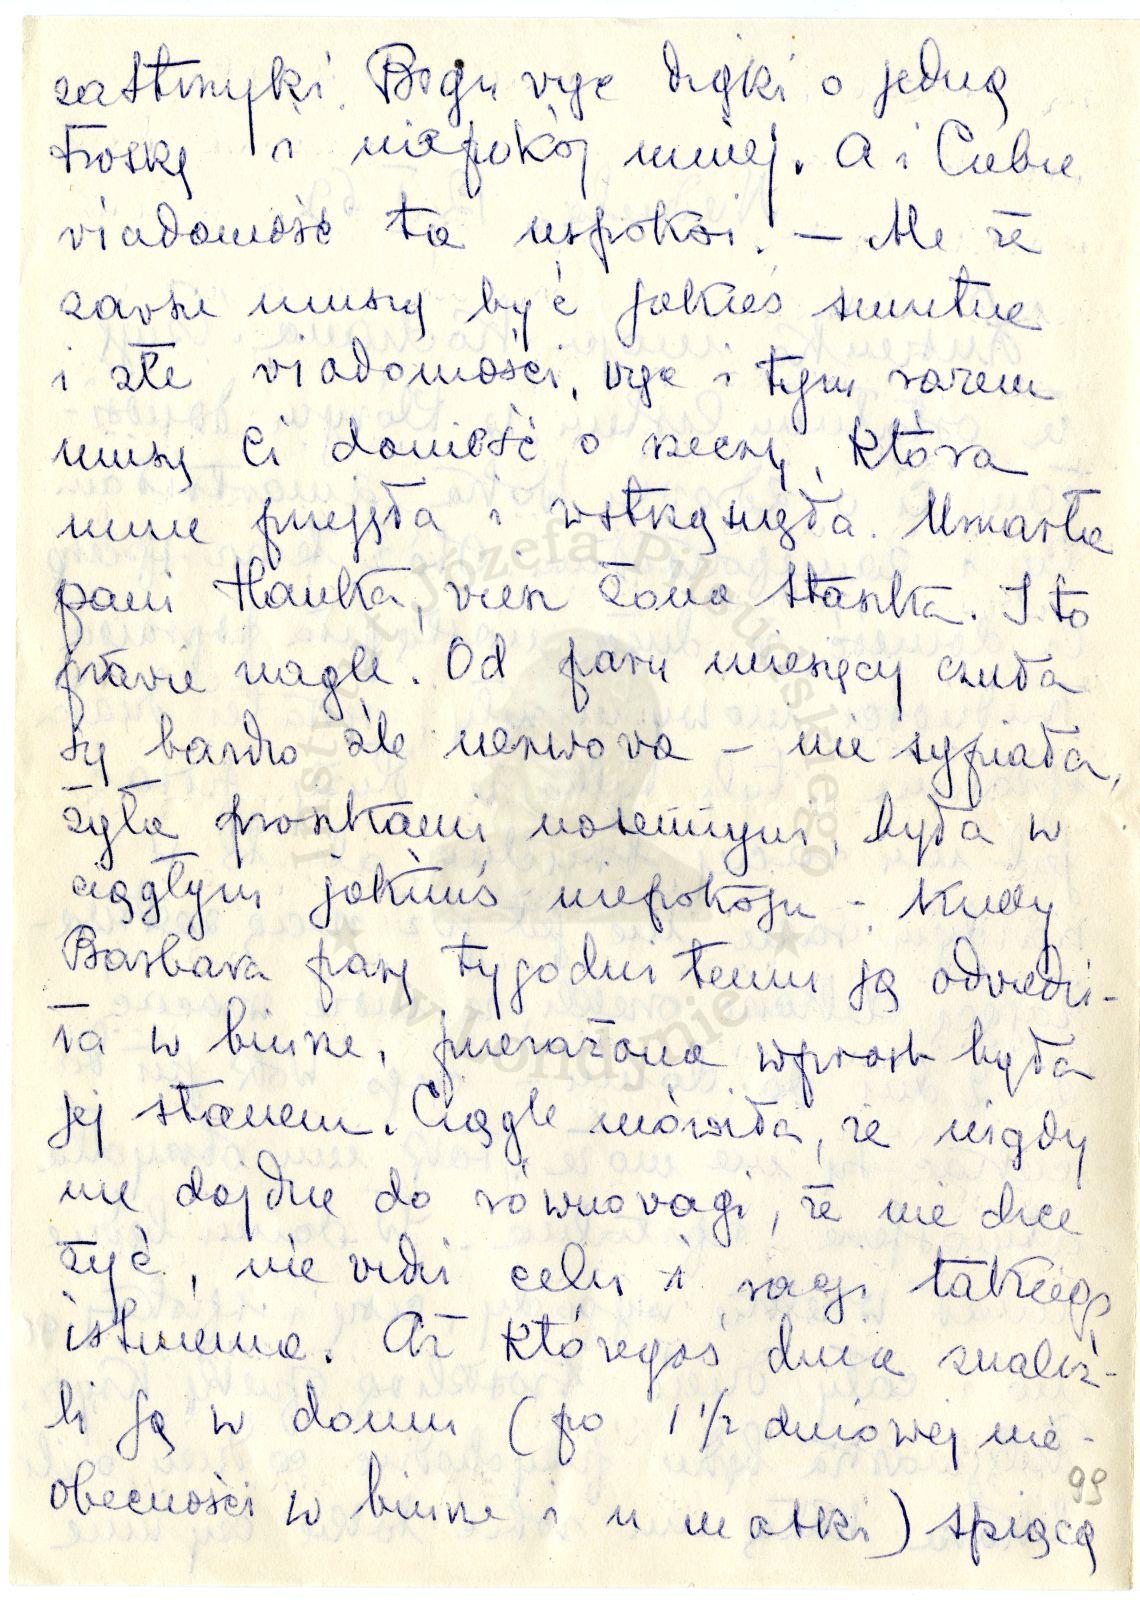 zastrzyki. Bogu więc dzięki o jedną
troskę i niepokój mniej. A i Ciebie
wiadomość ta uspokoi. — Ale że
zawsze muszą być jakieś smutne
i złe wiadomości, więc i tym razem
muszę Ci donieść o rzeczy, która
mnie przejęła i wstrząsnęła. Umarła
pani Hanka, wiesz żona Staszka. I to
prawie nagle. Od paru miesięcy czuła
się bardzo źle nerwowo – nie sypiała,
żyła proszkami nasennymi, była w
ciągłym jakimś niepokoju – Kiedy
Barbara parę tygodni temu ją odwiedzi-
ła w biurze, przerażona wprost była
jej stanem. Ciągle mówiła, że nigdy
nie dojdzie do równowagi, że nie chce
żyć, nie widzi celu i racji takiego
istnienia. Aż któregoś dnia znaleź-
li ją w domu (po 1 1/2 dniowej nie-
obecności w biurze i u matki) śpiącą
99
Instytut Józefa Piłsudskiego
★ w Londynie ★